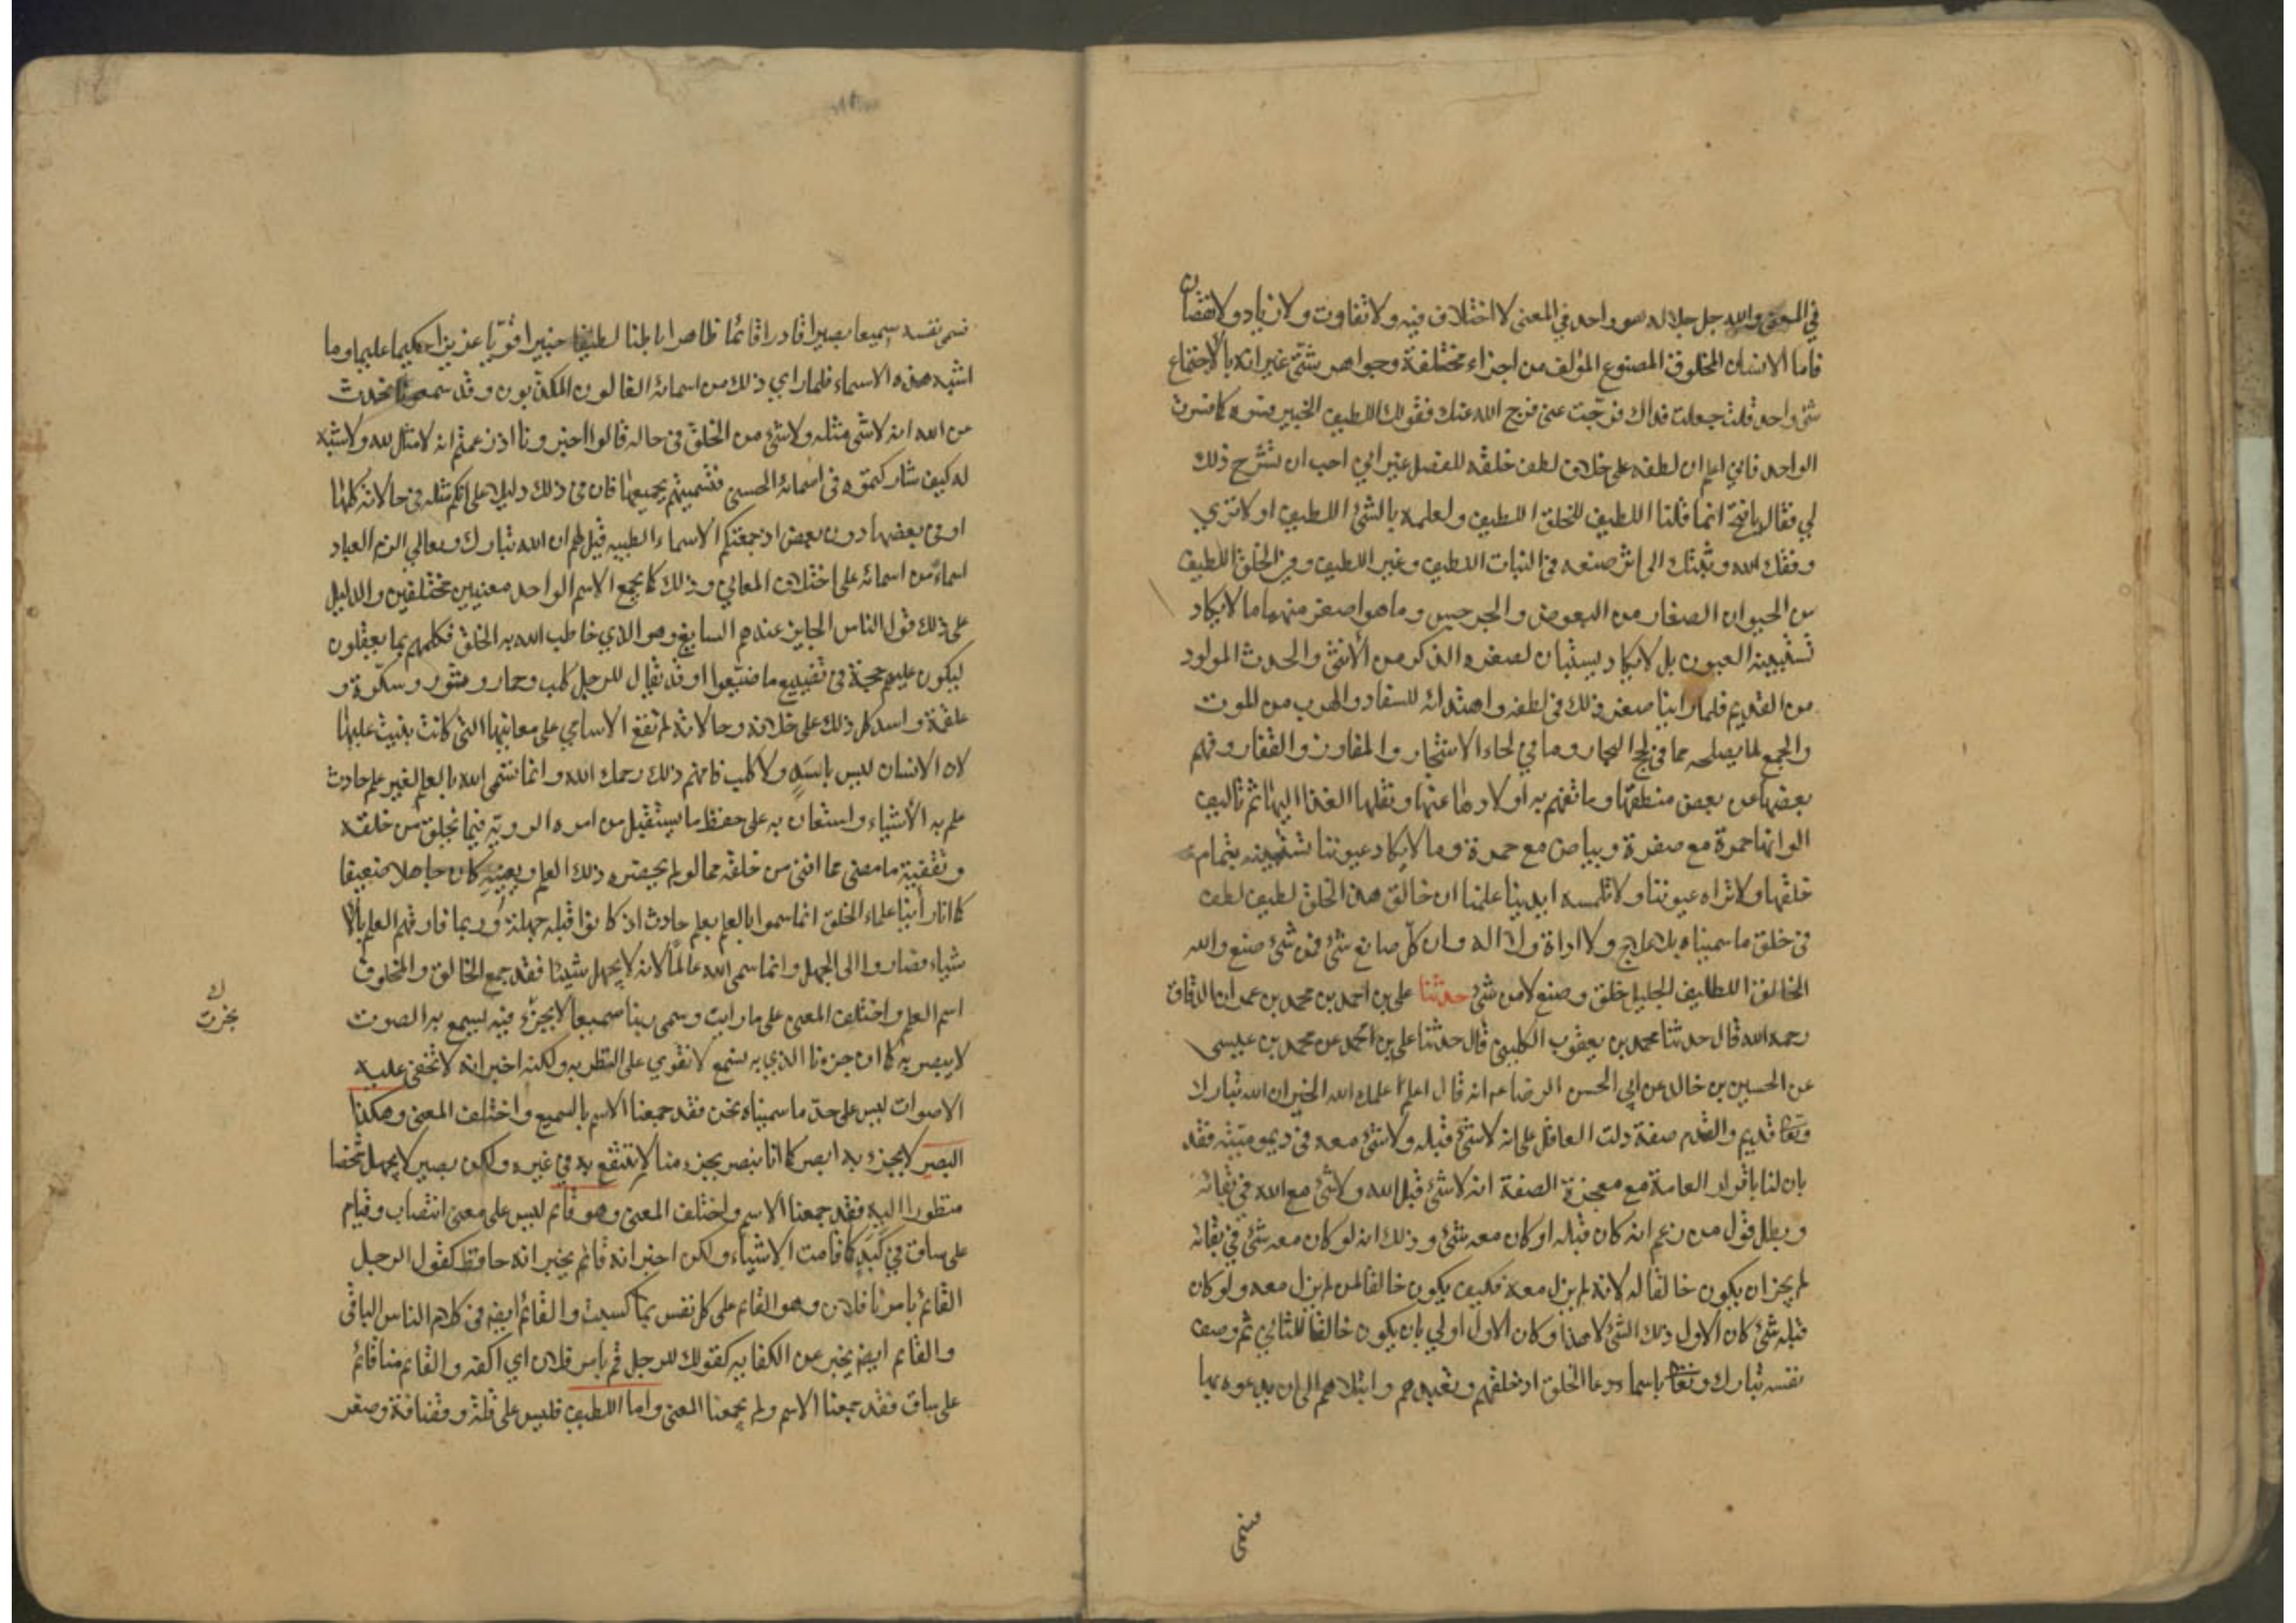 في المعنى والله جل جلاله هو واحد في المعنى لا اختلاف فيه ولا تفاوت ولا زيادة ولا نقصان
فاما الانسان المخلوق المصنوع المؤلف من اجزاء مختلفة وجواهر شتى غير انه بالاجتماع
شئ واحد قلت جعلت فداك فرجت عني فرج الله عنك فقولك اللطيف الخبير فسره كما فسرت
الواحد فاني اعلم ان لطفه على خلاف لطف خلقه للفصل غير اني احب ان تشرح ذلك
لي فقال يا فتح انما قلنا اللطيف للخلق اللطيف ولعلمه بالشئ اللطيف اولا ترى
وفقك الله وثبتك الى اثر صنعه في النبات اللطيف وغير اللطيف وفي الخلق اللطيف
من الحيوان الصغار من البعوض والجرجس وما هو اصغر منهما ما لا يكاد
تستبينه العيون بل لا يكاد يستبان لصغره الذكر من الأنثى والحدث المولود
من القديم فلما راينا صغر ذلك في لطفه واهتدائه للسفاد والهرب من الموت
والجمع لما يصلحه مما في لجج البحار وما في لحاء الاشجار والمفاوز والقفار وفهم
بعضها عن بعض منطقها وما تفهم به اولادها عنها ونقلها الغذا اليها ثم تاليف
الوانها حمرة مع صفرة وبياض مع حمرة وما لا يكاد عيوننا تستبينه بتمام
خلقها ولا تراه عيوننا ولا تلمسه ايدينا علمنا ان خالق هذا الخلق لطيف لطف
في خلق ما سميناه بلا علاج ولا اداة ولا اله وان كل صانع شئ فمن شئ صنع والله
الخالق اللطيف الجليل خلق وصنع لا من شئ حدثنا علي بن احمد بن محمد بن عمران الدقاق
رحمه الله قال حدثنا محمد بن يعقوب الكليني قال حدثنا علي بن احمد عن محمد بن عيسى
عن الحسين بن خالد عن ابي الحسن الرضا عم انه قال اعلم علمك الله الخير ان الله تبارك
وتعا قديم والقدم صفة دلت العاقل على انه لا شئ قبله ولا شئ معه في ديموميته فقد
بان لنا باقرار العامة مع معجزة الصفة انه لا شئ قبل الله ولا شئ مع الله في بقائه
وبطل قول من زعم انه كان قبله او كان معه شئ وذلك انه لو كان معه شئ في بقائه
لم يجز ان يكون خالقا له لانه لم يزل معه فكيف يكون خالقا لمن لم يزل معه ولو كان
قبله شئ كان الاول ذلك الشئ لا هذا وكان الاول اولى بان يكون خالقا للثاني ثم وصف
نفسه تبارك وتعا باسماء دعا الخلق اذ خلقهم وتعبدهم وابتلاهم الى ان يدعوه بها
فسمى
فسمى نفسه سميعا بصيرا قادرا قائما ظاهرا باطنا لطيفا خبيرا قويا عزيزا حكيما عليما وما
اشبه هذه الاسماء فلما راى ذلك من اسمائه الغالون المكذبون وقد سمعونا نحدث
عن الله انه لا شئ مثله ولا شئ من الخلق في حاله قالوا اخبرونا اذ زعمتم انه لا مثل لله ولا شبه
له كيف شاركتموه في اسمائه الحسنى فتسميتم بجميعها فان في ذلك دليلا على انكم مثله في حالاته كلها
او في بعضها دون بعض اذ جمعتكم الاسماء الطيبه قيل لهم ان الله تبارك وتعالى الزم العباد
اسماء من اسمائه على اختلاف المعاني وذلك كما يجمع الاسم الواحد معنيين مختلفين والدليل
على ذلك قول الناس الجايز عندهم السايغ وهو الذي خاطب الله به الخلق فكلمهم بما يعقلون
ليكون عليهم حجة في تضييع ما ضيعوا وقد يقال للرجل كلب وحمار وثور وسكرة و
علقمة واسد كل ذلك على خلافه وحالاته لم تقع الاسامي على معانيها التي كانت بنيت عليها
لان الانسان ليس باسد ولا كلب فافهم ذلك رحمك الله وانما نسمى الله بالعلم لغير علم حادث
علم به الأشياء واستعان به على حفظ ما يستقبل من امره الروية فيما يخلق من خلقه
وتفقيه ما مضى مما افنى من خلقه مما لو لم يحضره ذلك العلم ويعينه كان جاهلا ضعيفا
كما انا رأينا علماء الخلق انما سموا بالعلم بعلم حادث اذ كانوا قبله جهلة وربما فارقهم العلم بالا
شياء فصاروا الى الجهل وانما سمى الله عالما لانه لا يجهل شيئا فقد جمع الخالق والمخلوق
اسم العلم واختلف المعنى على ما رايت وسمى ربنا سميعا لا بجزء فيه يسمع به الصوت
لا يبصر به كما ان جزءنا الذي به نسمع لا نقوى على النظر به ولكنه اخبر انه لا تخفى عليه
الاصوات ليس على حد ما سميناه نحن فقد جمعنا الاسم بالسميع واختلف المعنى وهكذا
البصر لا بجزء به ابصر كما انا نبصر بجزء منا لا ننتفع به في غيره ولكن بصير لا يجهل شخصا
منظورا اليه فقد جمعنا الاسم واختلف المعنى وهو قائم ليس على معنى انتصاب وقيام
على ساق في كبد كما قامت الاشياء ولكن اخبر انه قائم يخبر انه حافظ كقول الرجل
القائم بامرنا فلان وهو القائم على كل نفس بما كسبت والقائم ايضا في كلام الناس الباقي
والقائم ايضا يخبر عن الكفاية كقولك للرجل قم بامر فلان اي اكفه والقائم منا قائم
على ساق فقد جمعنا الاسم ولم يجمعنا المعنى واما اللطيف فليس على قلة وقضافة وصغر